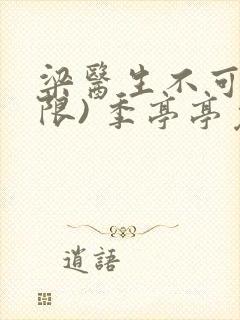 梁醫生不可
限）季亭亭
逍語